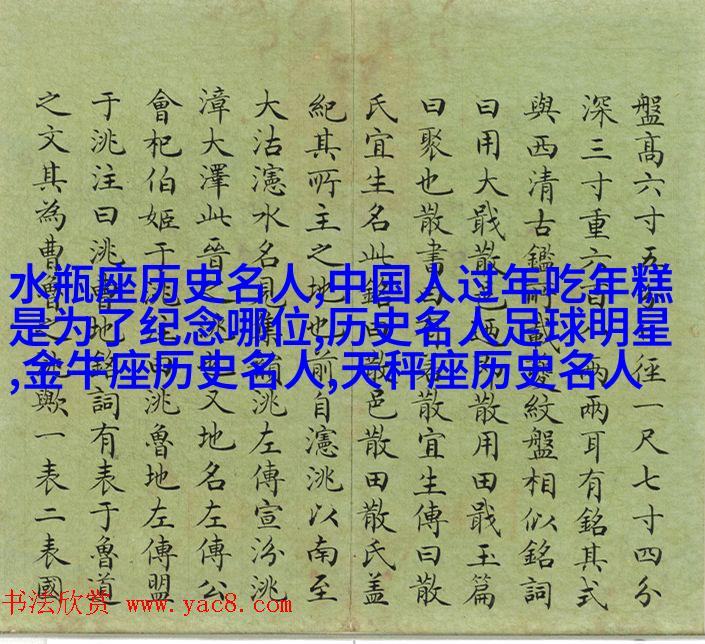 盤高六寸五徑一尺七寸四分
深三寸重六百兩兩耳有銘其式
與西清古鑑所載夔紋盤相似銘詞
曰用大戩散邑廼即散用田戩玉篇
曰聚也散書曰散宜生傳曰散
氏宜生名此銘曰散邑散田散氏蓋
紀其所主之地也前自瀗洮以南至
大沽瀗水名見集韻洮左傳宣汾洮
漳大澤此晉之洮又地名左傳公
會杞伯姬于洮注曰洮魯地左傳盟
于洮注曰洮曹地銘詞有表于魯道
之文其為曹魯之歟一表二表國
水瓶座历史名人,中国人过年吃年糕
是为了纪念哪位,历史名人足球明星
,金牛座历史名人,天秤座历史名人
书法欣赏 www.yac8.com